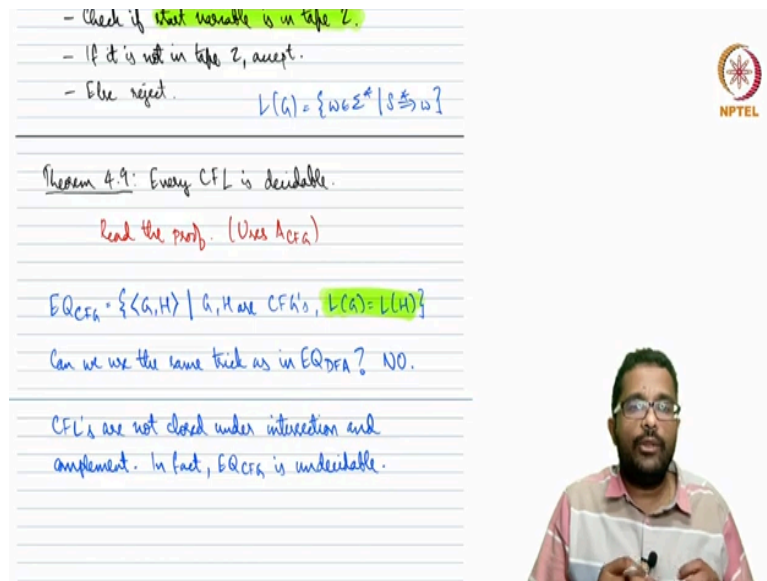 - Check if start variable is in tape 2.
- If it is not in tape 2, accept.
- Else reject.
L(G) = {w ∈ Σ* | S ⇒* w}
NPTEL
Theorem 4.9: Every CFL is decidable.
Read the proof. (Uses A_CFG)
EQ_CFG = {⟨G,H⟩ | G, H are CFG's, L(G) = L(H)}
Can we use the same trick as in EQ_DFA? NO.
CFL's are not closed under intersection and
complement. In fact, EQ_CFG is undecidable.